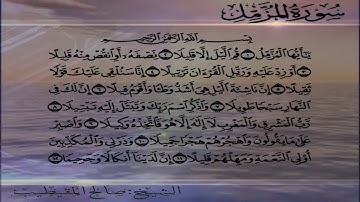 سورة المزمل
بسم الله الرحمن الرحيم
يَا أَيُّهَا الْمُزَّمِّلُ ۝ قُمِ اللَّيْلَ إِلَّا قَلِيلًا ۝ نِصْفَهُ أَوِ انْقُصْ مِنْهُ قَلِيلًا
۝ أَوْ زِدْ عَلَيْهِ وَرَتِّلِ الْقُرْآنَ تَرْتِيلًا ۝ إِنَّا سَنُلْقِي عَلَيْكَ قَوْلًا
ثَقِيلًا ۝ إِنَّ نَاشِئَةَ اللَّيْلِ هِيَ أَشَدُّ وَطْئًا وَأَقْوَمُ قِيلًا ۝ إِنَّ لَكَ فِي
النَّهَارِ سَبْحًا طَوِيلًا ۝ وَاذْكُرِ اسْمَ رَبِّكَ وَتَبَتَّلْ إِلَيْهِ تَبْتِيلًا ۝
رَبُّ الْمَشْرِقِ وَالْمَغْرِبِ لَا إِلَهَ إِلَّا هُوَ فَاتَّخِذْهُ وَكِيلًا ۝ وَاصْبِرْ
عَلَى مَا يَقُولُونَ وَاهْجُرْهُمْ هَجْرًا جَمِيلًا ۝ وَذَرْنِي وَالْمُكَذِّبِينَ
أُولِي النَّعْمَةِ وَمَهِّلْهُمْ قَلِيلًا ۝ إِنَّ لَدَيْنَا أَنْكَالًا وَجَحِيمًا ۝
الشيخ : صالح